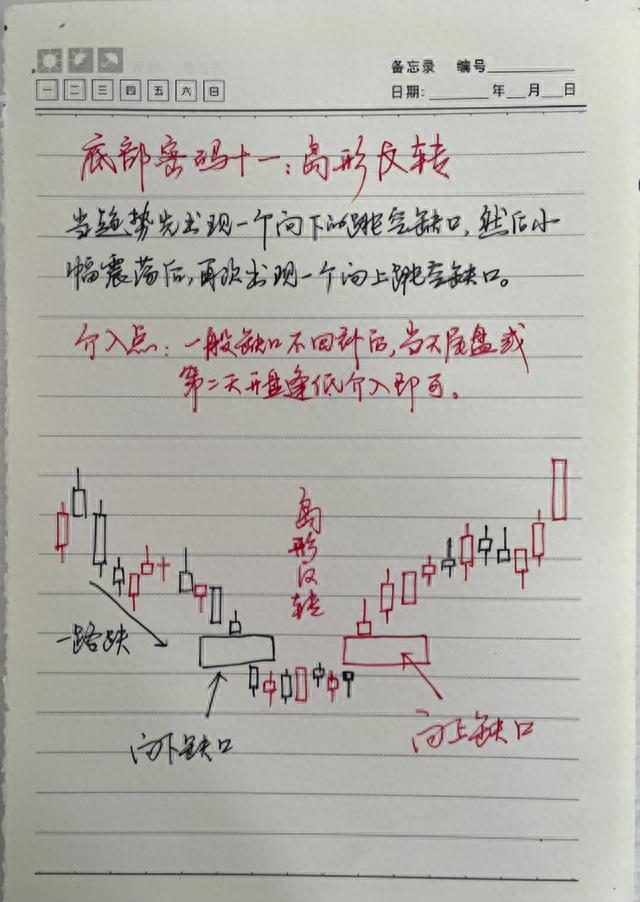 备忘录 编号
一 二 三 四 五 六 日
日期: 年 月 日
底部密码十一：岛形反转
当趋势先出现一个向下的跳空缺口，然后小
幅震荡后，再次出现一个向上跳空缺口。
介入点：一般缺口不回补后，当天尾盘或
第二天开盘逢低介入即可。
岛形反转
一路跌
向下缺口
向上缺口